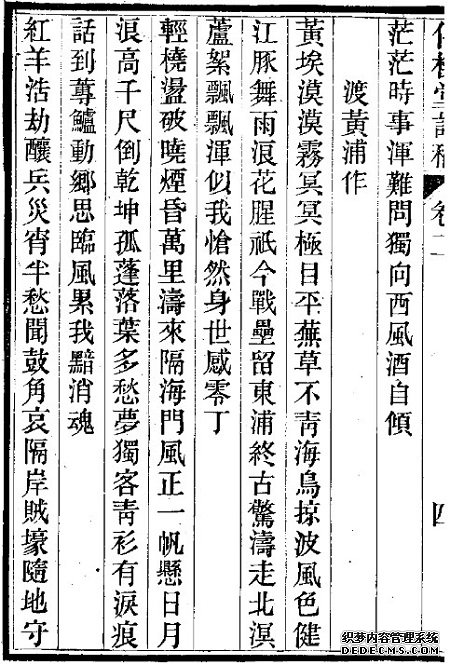 茫茫時事渾難問獨向西風酒自傾
渡黃浦作
黃埃漠漠霧冥冥極目平蕪草不靑海鳥掠波風色健
江豚舞雨浪花腥祇今戰壘留東浦終古驚濤走北溟
蘆絮飄飄渾似我愴然身世感零丁
輕橈盪破曉煙昏萬里濤來隔海門風正一帆懸日月
浪高千尺倒乾坤孤蓬落葉多愁夢獨客靑衫有淚痕
話到蓴鱸動鄉思臨風累我黯消魂
紅羊浩劫釀兵災宵半愁聞鼓角哀隔岸賊壕隨地守
卷二
四
织梦内容管理系统
DEDECMS.COM